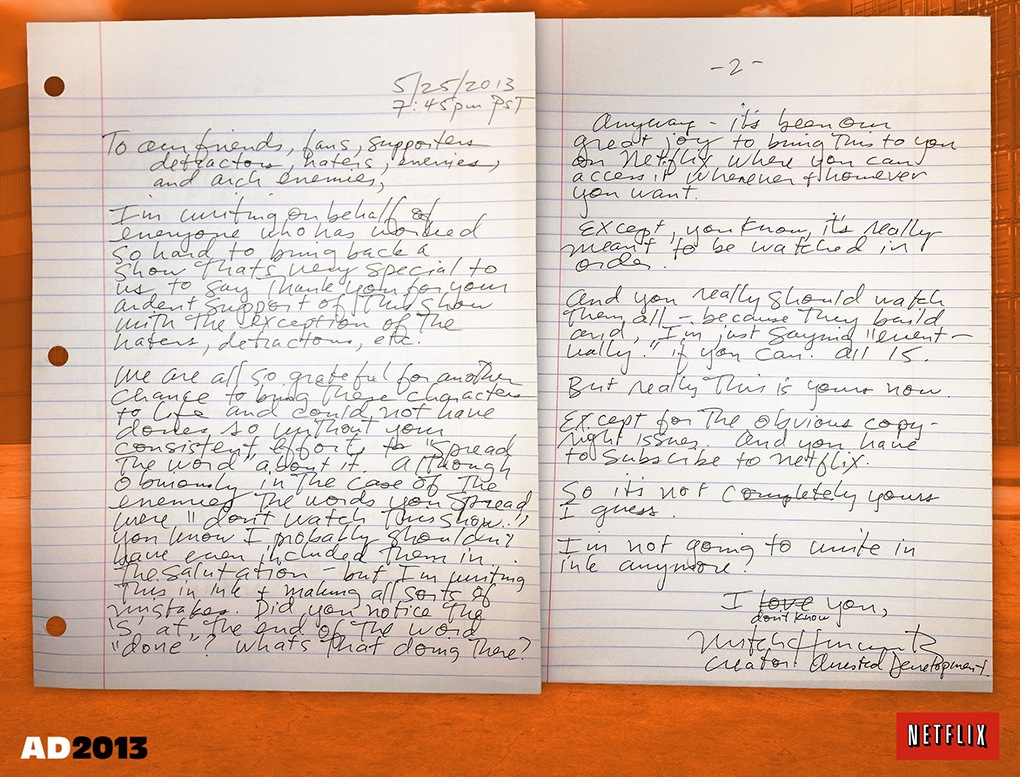 5/25/2013
7:45pm PST
To our friends, fans, supporters
detractors, haters, enemies,
and arch enemies,
I'm writing on behalf of
everyone who has worked
so hard to bring back a
show thats very special to
us, to say thank you for your
ardent support of this show
with the exception of the
haters, detractors, etc.
We are all so grateful for another
chance to bring these characters
to life and could not have
dones so without your
consistent effort to "spread
the word" about it. Although
obviously in the case of the
enemies the words you spread
were "don't watch this show."
You know I probably shouldn't
have even included them in
the salutation - but I'm writing
this in ink + making all sorts of
mistakes. Did you notice the
'S' at the end of the word
"done"? Whats that doing there?
-2-
Anyway - it's been our
great joy to bring this to you
on Netflix where you can
access it whenever + however
you want.
Except, you know, it's really
meant to be watched in
order.
And you really should watch
them all - because they build
and, I'm just saying "event-
ually." if you can. all 15.
But really this is yours now.
Except for the obvious copy-
right issues. And you have
to subscribe to netflix.
So it's not completely yours
I guess.
I'm not going to write in
ink anymore.
I love you,
don't know
Creator Arrested Development
AD2013
NETFLIX